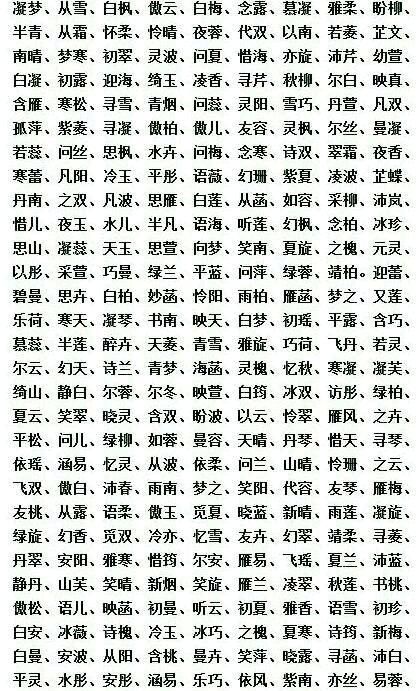 凝梦、从雪、白枫、傲云、白梅、念露、慕凝、雅柔、盼柳、
半青、从霜、怀柔、怜晴、夜蓉、代双、以南、若菱、芷文、
南晴、梦寒、初翠、灵波、问夏、惜海、亦旋、沛芹、幼萱、
白凝、初露、迎海、绮玉、凌香、寻芹、秋柳、尔白、映真、
含雁、寒松、寻雪、青烟、问蕊、灵阳、雪巧、丹萱、凡双、
孤萍、紫菱、寻凝、傲柏、傲儿、友容、灵枫、尔丝、曼凝、
若蕊、问丝、思枫、水卉、问梅、念寒、诗双、翠霜、夜香、
寒蕾、凡阳、冷玉、平彤、语薇、幻珊、紫夏、凌波、芷蝶、
丹南、之双、凡波、思雁、白莲、从菡、如容、采柳、沛岚、
惜儿、夜玉、水儿、半凡、语海、听莲、幻枫、念柏、冰珍、
思山、凝蕊、天玉、思萱、向梦、笑南、夏旋、之槐、元灵、
以彤、采萱、巧曼、绿兰、平蓝、问萍、绿蓉、靖柏。迎蕾、
碧曼、思卉、白柏、妙菡、怜阳、雨柏、雁菡、梦之、又莲、
乐荷、寒天、凝琴、书南、映天、白梦、初瑶、平露、含巧、
慕蕊、半莲、醉卉、天菱、青雪、雅旋、巧荷、飞丹、若灵、
尔云、幻天、诗兰、青梦、海菡、灵槐、忆秋、寒凝、凝芙、
绮山、静白、尔蓉、尔冬、映萱、白筠、冰双、访彤、绿柏、
夏云、笑翠、晓灵、含双、盼波、以云、怜翠、雁风、之卉、
平松、问儿、绿柳、如蓉、曼容、天晴、丹琴、惜天、寻琴、
依瑶、涵易、忆灵、从波、依柔、问兰、山晴、怜珊、之云、
飞双、傲白、沛春、雨南、梦之、笑阳、代容、友琴、雁梅、
友桃、从露、语柔、傲玉、觅夏、晓蓝、新晴、雨莲、凝旋、
绿旋、幻香、觅双、冷亦、忆雪、友卉、幻翠、靖柔、寻菱、
丹翠、安阳、雅寒、惜筠、尔安、雁易、飞瑶、夏兰、沛蓝、
静丹、山芙、笑晴、新烟、笑旋、雁兰、凌翠、秋莲、书桃、
傲松、语儿、映菡、初曼、听云、初夏、雅香、语雪、初珍、
白安、冰薇、诗槐、冷玉、冰巧、之槐、夏寒、诗筠、新梅、
白曼、安波、从阳、含桃、曼卉、笑萍、晓露、寻菡、沛白、
平灵、水彤、安彤、涵易、乐巧、依风、紫南、亦丝、易蓉、